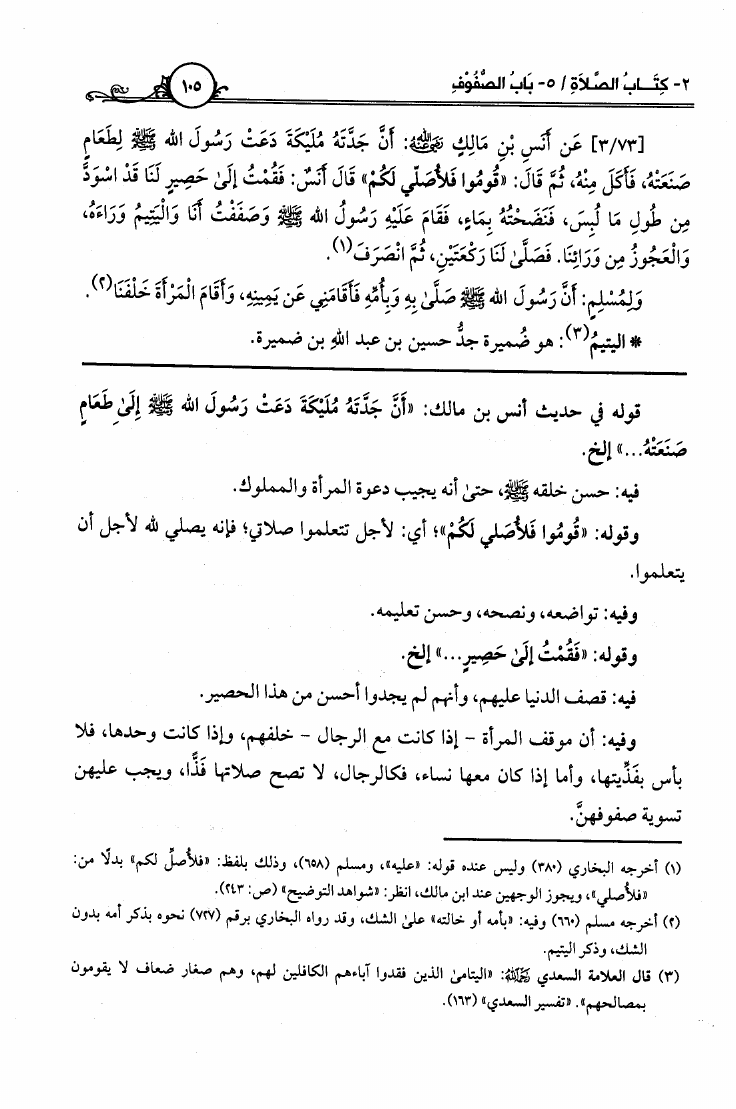 ٢- كِتَابُ الصَّلَاةِ / ٥- بَابُ الصُّفُوفِ
١٠٥
[٣/٧٣] عَن أَنَسِ بْنِ مَالِكٍ رَضِيَ اللهُ عَنْهُ: أَنَّ جَدَّتَهُ مُلَيْكَةَ دَعَتْ رَسُولَ الله ﷺ لِطَعَامٍ
صَنَعَتْهُ، فَأَكَلَ مِنْهُ، ثُمَّ قَالَ: «قُومُوا فَلأُصَلِّي لَكُمْ» قَالَ أَنَسٌ: فَقُمْتُ إِلَىٰ حَصِيرٍ لَنَا قَدْ اسْوَدَّ
مِن طُولِ مَا لُبِسَ، فَنَضَحْتُهُ بِمَاءٍ، فَقَامَ عَلَيْهِ رَسُولُ الله ﷺ وَصَفَفْتُ أَنَا وَالْيَتِيمُ وَرَاءَهُ،
وَالْعَجُوزُ مِن وَرَائِنَا. فَصَلَّىٰ لَنَا رَكْعَتَيْنِ، ثُمَّ انْصَرَفَ(١).
وَلِمُسْلِمٍ: أَنَّ رَسُولَ الله ﷺ صَلَّىٰ بِهِ وَبِأُمِّهِ فَأَقَامَنِي عَن يَمِينِهِ، وَأَقَامَ الْمَرْأَةَ خَلْفَنَا(٢).
* اليتيمُ(٣): هو ضُميرة جدُّ حسين بن عبد اللهِ بن ضميرة.
قوله في حديث أنس بن مالك: «أَنَّ جَدَّتَهُ مُلَيْكَةَ دَعَتْ رَسُولَ الله ﷺ إِلَىٰ طَعَامٍ
صَنَعَتْهُ...» إلخ.
فيه: حسن خلقه ﷺ، حتىٰ أنه يجيب دعوة المرأة والمملوك.
وقوله: «قُومُوا فَلأُصَلي لَكُمْ»؛ أي: لأجل تتعلموا صلاتي؛ فإنه يصلي لله لأجل أن
يتعلموا.
وفيه: تواضعه، ونصحه، وحسن تعليمه.
وقوله: «فَقُمْتُ إِلَىٰ حَصِيرٍ...» إلخ.
فيه: قصف الدنيا عليهم، وأنهم لم يجدوا أحسن من هذا الحصير.
وفيه: أن موقف المرأة - إذا كانت مع الرجال - خلفهم، وإذا كانت وحدها، فلا
بأس بفَذِّيتها، وأما إذا كان معها نساء، فكالرجال، لا تصح صلاتها فَذًّا، ويجب عليهن
تسوية صفوفهنَّ.
(١) أخرجه البخاري (٣٨٠) وليس عنده قوله: «عليه»، ومسلم (٦٥٨)، وذلك بلفظ: «فلأُصلِّ لكم» بدلًا من:
«فلأصلي»، ويجوز الوجهين عند ابن مالك، انظر: «شواهد التوضيح» (ص: ٢٤٣).
(٢) أخرجه مسلم (٦٦٠) وفيه: «بأمه أو خالته» علىٰ الشك، وقد رواه البخاري برقم (٧٢٧) نحوه بذكر أمه بدون
الشك، وذكر اليتيم.
(٣) قال العلامة السعدي رَحِمَهُ اللهُ: «اليتامىٰ الذين فقدوا آباءهم الكافلين لهم، وهم صغار ضعاف لا يقومون
بمصالحهم». «تفسير السعدي» (١٦٣).